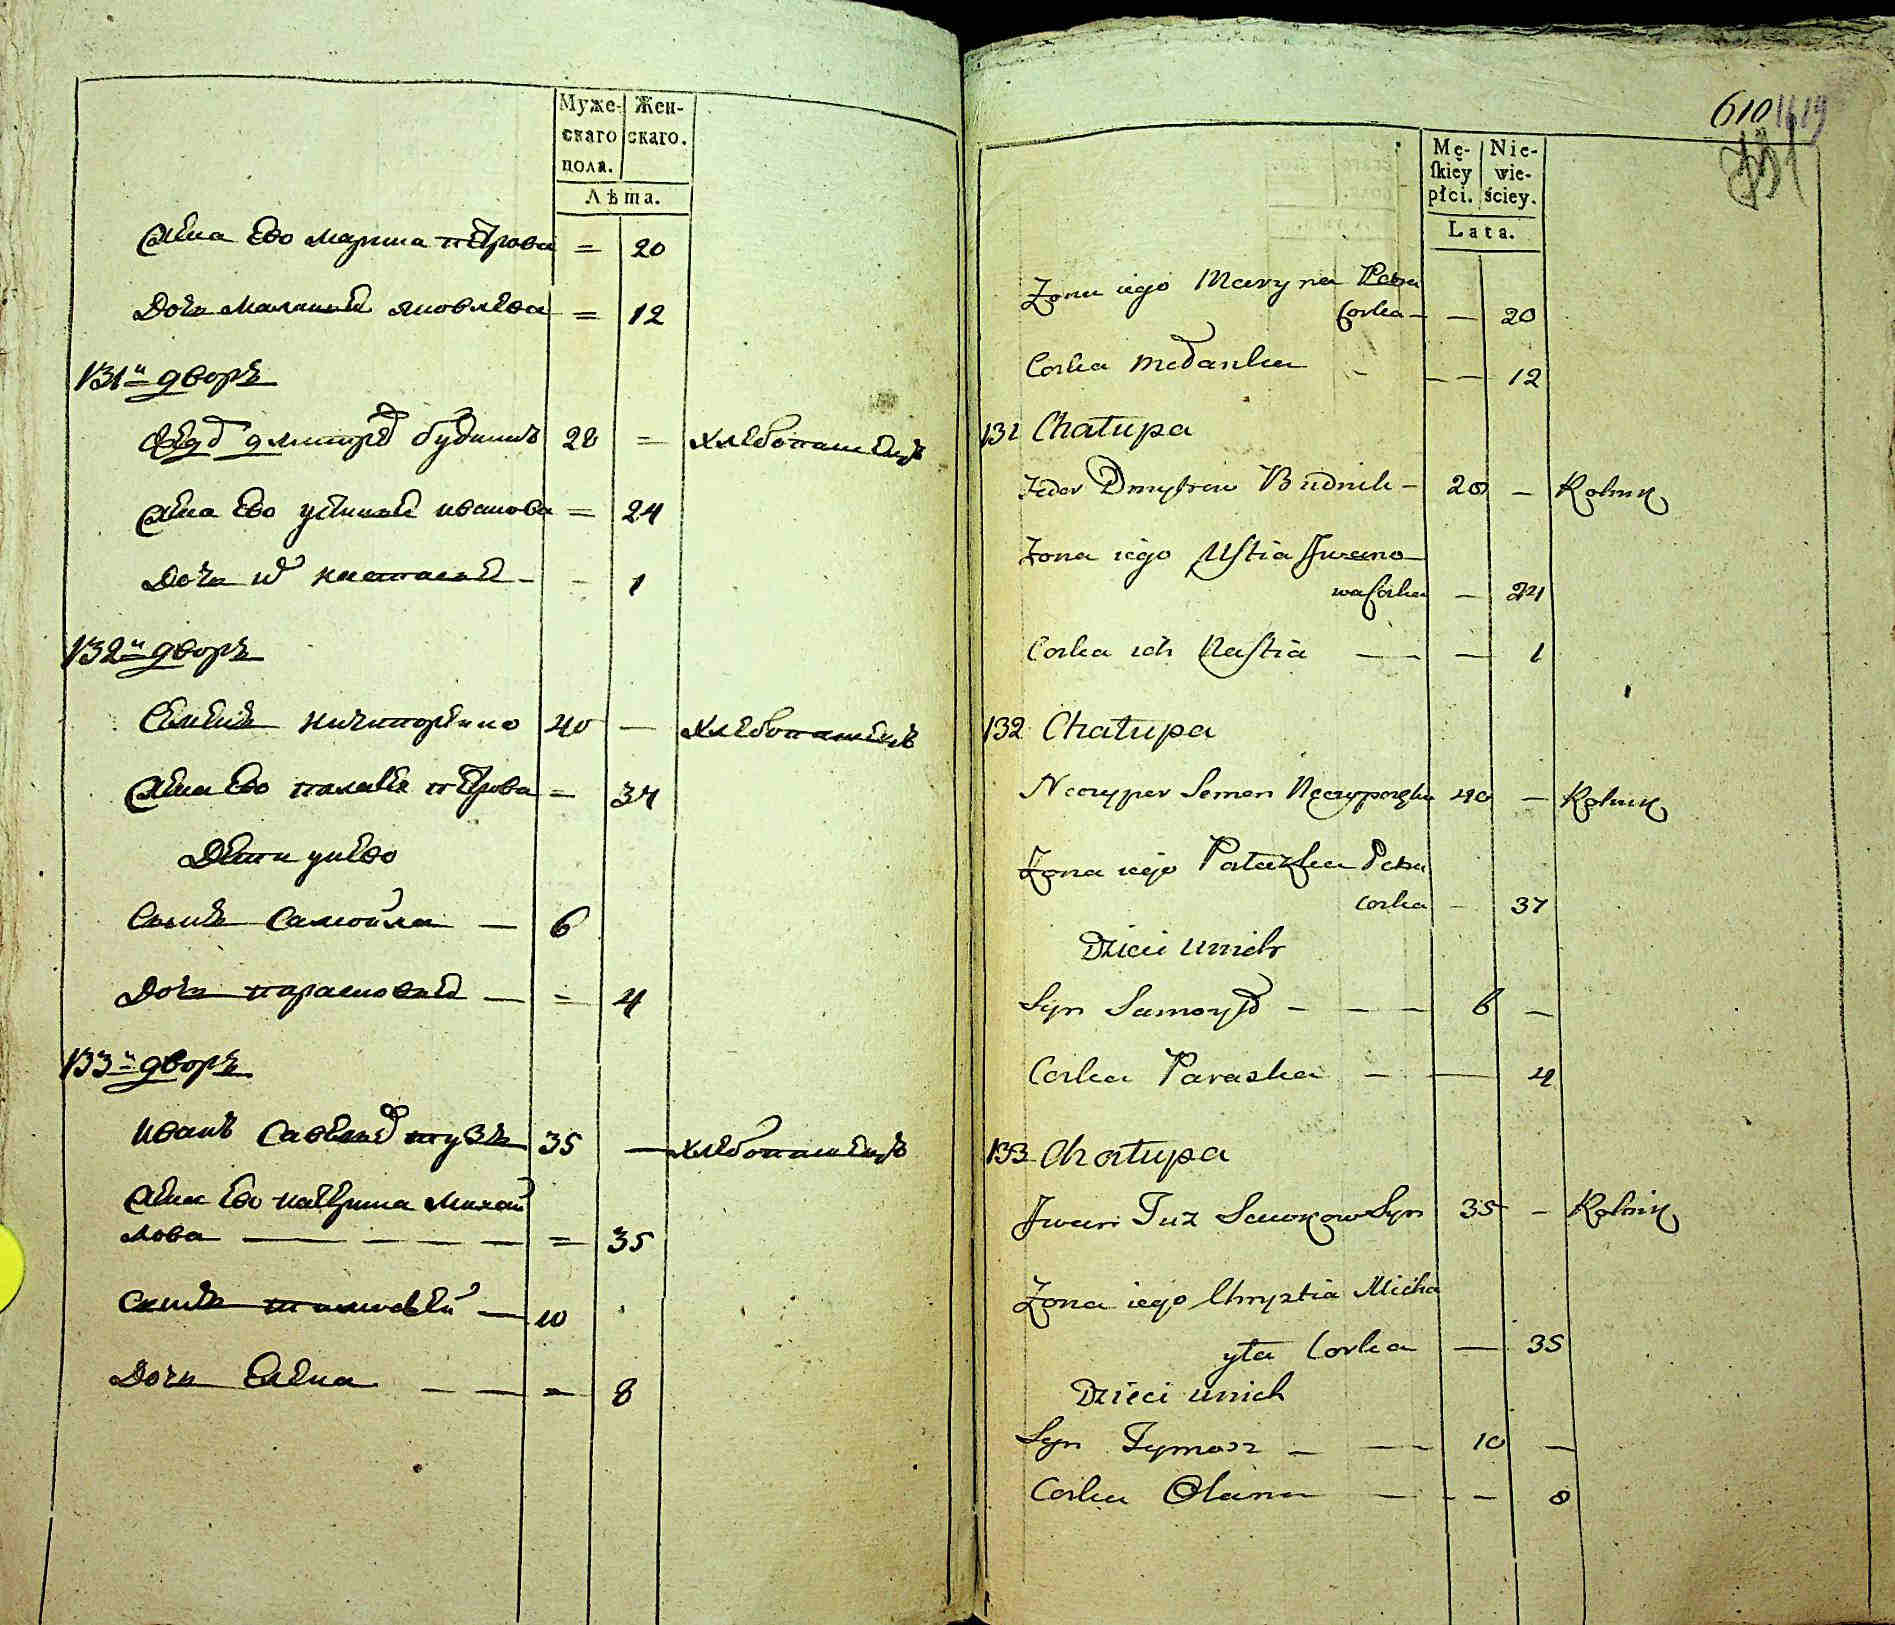 Муже-
скаго
пола.
Жен-
скаго.
Лѣта.
Жена Ево марина петрова = 20
Дочь маланья яковлева = 12
131й дворъ
Федоръ дмитриевъ будникъ 28 = хлебопашецъ
Жена Ево устинья иванова = 24
Дочь их настасья - - 1
132й дворъ
Семенъ ничипоренко 40 — хлебопашецъ
Жена Ево палагея петрова = 34
Дети у нево
Сынъ Самойла — 6
Дочь парасковья — = 4
133й дворъ
Иванъ Савельев тузъ 35 — хлебопашецъ
Жена Ево катерина Михай
лова — — — — — = 35
Сынъ тимофей — 10
Дочь Елена — — = 8
610 1619
Mę-
skiey
płci.
Nie-
wie-
ściey.
Lata.
Zona iego Maryna Petra
Corka — — 20
Corka Melanka - — — 12
131 Chałupa
Fedor Dmytrow Budnik — 28 — Rolnik
Zona iego Ustia Iwano
wa Corka — 24
Corka ich Nastia — — — 1
132 Chałupa
Semen Neczyporenko 40 — Rolnik
Zona iego Pałazka Petra
Corka - 37
Dzieci u nich
Syn Samoyło — — — 6 —
Corka Paraska — — 4
133 Chałupa
Iwan Tuz Sawkow Syn 35 — Rolnik
Zona iego Chrystia Micha
yła Corka — 35
Dzieci u nich
Syn Tymosz — — — 10 —
Corka Olena — - — 8